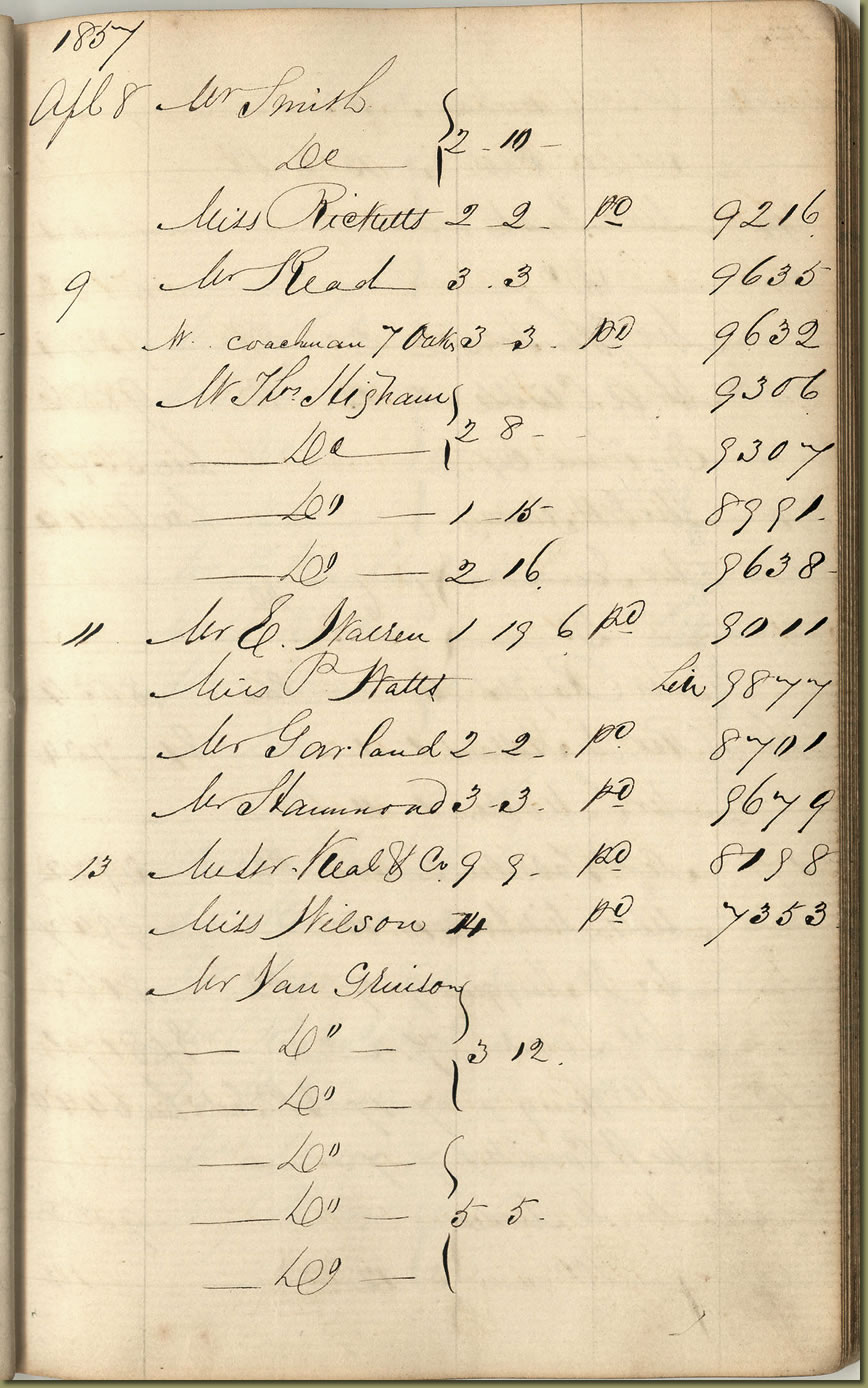 1857
Apl 8 Mr Smith
Do 2 - 10 -
Miss Ricketts 2 - 2 - pd 9216
9 Mr Read 3 . 3 9635
W. coachman 7 Oaks 3 - 3 . pd 9632
Mr Thos Higham 9306
Do 2 8 - 9307
Do 1 - 15 - 8991
Do 2 16 9638
11 Mr E. Warren 1 19 6 pd 9011
Miss P Watts 9877
Mr Garland 2 - 2 - pd 8701
Mr Hammond 3 - 3 . pd 9679
13 Messr. Keal & Co 9 9 - pd 8198
Miss Wilson 14 pd 7353
Mr Van
Do 3 12 .
Do
Do
Do 5 5 -
Do